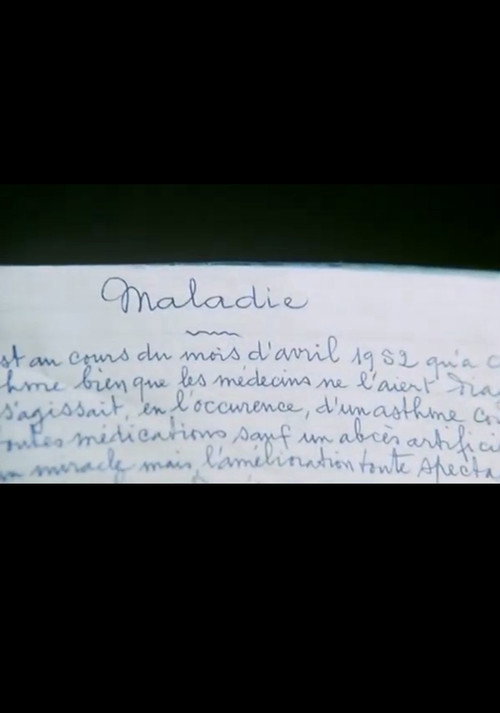 Maladie
st au cours du mois d'avril 1952 qu'a c
hme bien que les médecins ne l'aient
s'agissait, en l'occurence, d'un asthme co
toutes médications sauf un abcès artifici
un miracle mais l'amélioration toute specta